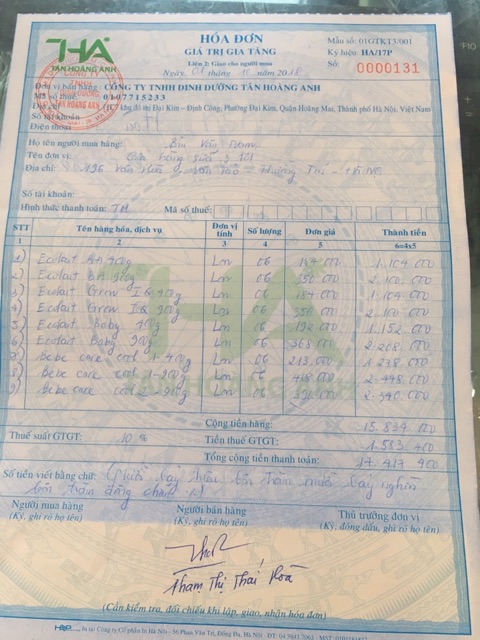 THA
TÂN HOÀNG ANH
HÓA ĐƠN
GIÁ TRỊ GIA TĂNG
Liên 2: Giao cho người mua
Ngày 01 tháng năm 2018
Mẫu số: 01GTKT3/001
Ký hiệu: HA/17P
Số: 0000131
Đơn vị bán hàng: CÔNG TY TNHH DINH DƯỠNG TÂN HOÀNG ANH
Mã số thuế: 0107715233
Địa chỉ khu đô thị Đại Kim - Định Công, Phường Đại Kim, Quận Hoàng Mai, Thành phố Hà Nội, Việt Nam
Số tài khoản
Điện thoại
Họ tên người mua hàng: Bùi Văn Nam
Tên đơn vị: Cửa hàng sữa
Địa chỉ: 196
Số tài khoản:
Hình thức thanh toán: TM Mã số thuế:
STT Tên hàng hóa, dịch vụ Đơn vị tính Số lượng Đơn giá Thành tiền
1 2 3 4 5 6=4x5
1) Ecolait BA 400g Lon 06 184 000 1.104 000
2) Ecolait BA 900g Lon 06 350 000 2.100 000
3) Ecolait Grow IQ 400g Lon 06 184 000 1.104 000
4) Ecolait Grow IQ 900g Lon 06 350 000 2.100 000
5) Ecolait Baby 400g Lon 06 192 000 1.152 000
6) Ecolait Baby 900g Lon 06 368 000 2.208 000
Bebe care cool 1-400g Lon 06 213 000
8) Bebe care cool 1-900g Lon 06 2.448 000
9) Bebe care cool 2-900g Lon 06 390 000 2.340 000
Cộng tiền hàng: 15.834 000
Thuế suất GTGT: 10 % Tiền thuế GTGT: 1.583 400
Tổng cộng tiền thanh toán: 17.417 400
Số tiền viết bằng chữ: Mười bảy triệu bốn trăm mười bảy nghìn
bốn trăm đồng chẵn
Người mua hàng Người bán hàng Thủ trưởng đơn vị
(Ký, ghi rõ họ tên) (Ký, ghi rõ họ tên) (Ký, đóng dấu, ghi rõ họ tên)
Phạm Thị Thái Hoà
(Cần kiểm tra, đối chiếu khi lập, giao, nhận hóa đơn)
In tại Công ty Cổ phần In Hà Nội - 56 Phan Văn Trị, Đống Đa, Hà Nội